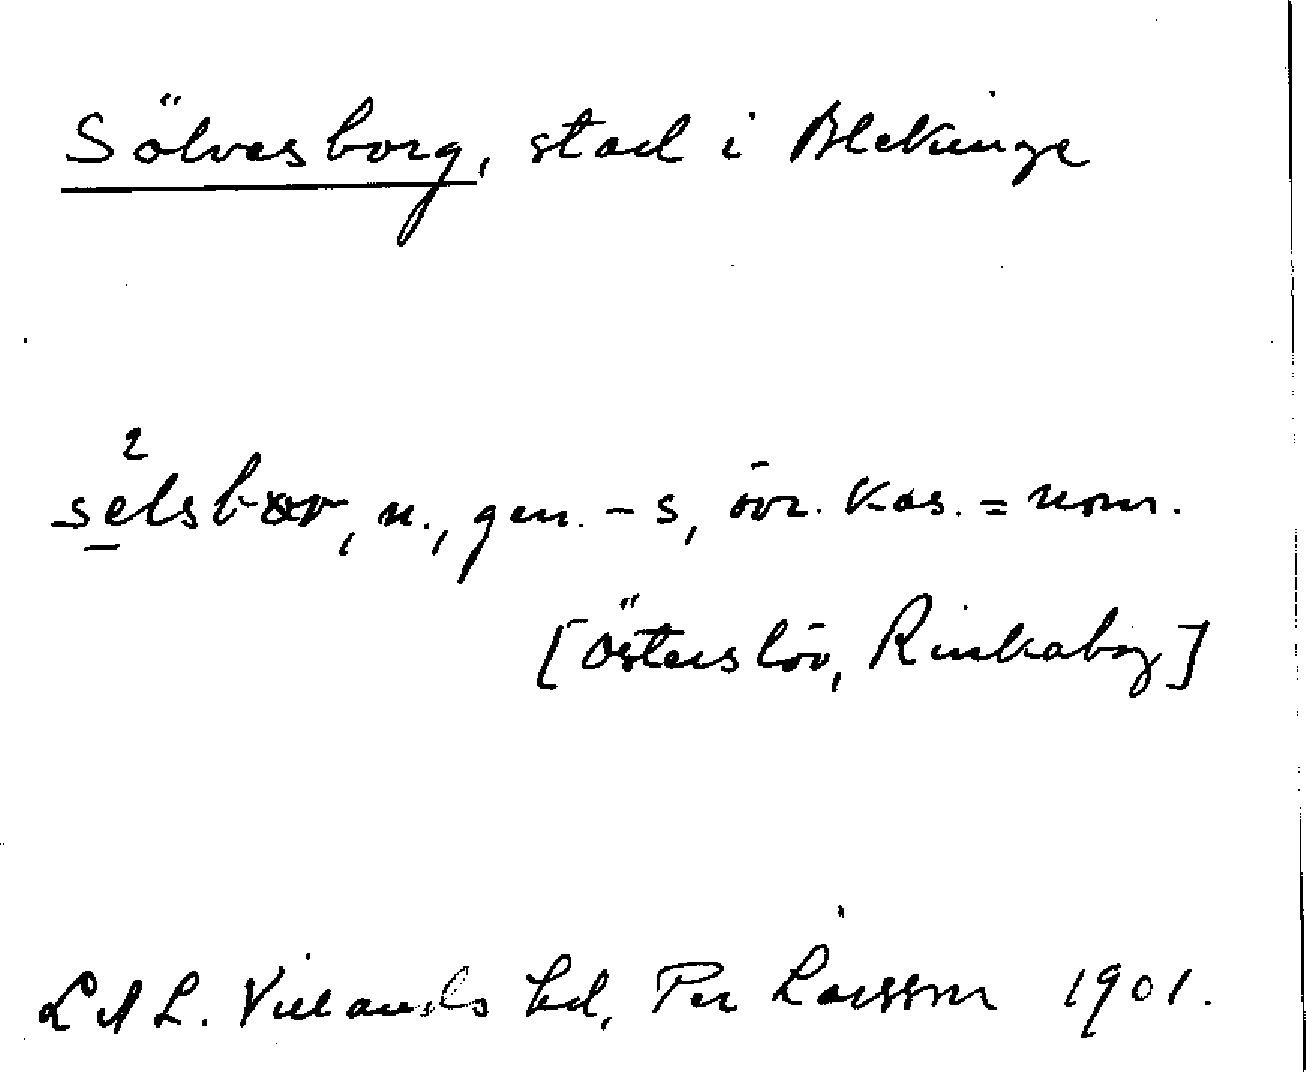 Sölvesborg, stad i Blekinge
sèlsbɷr, n., gen. -s, övr. kas. = nom.
[Österslöv, Rinkaby]
LAL. Villands hd, Per Larsson 1901.